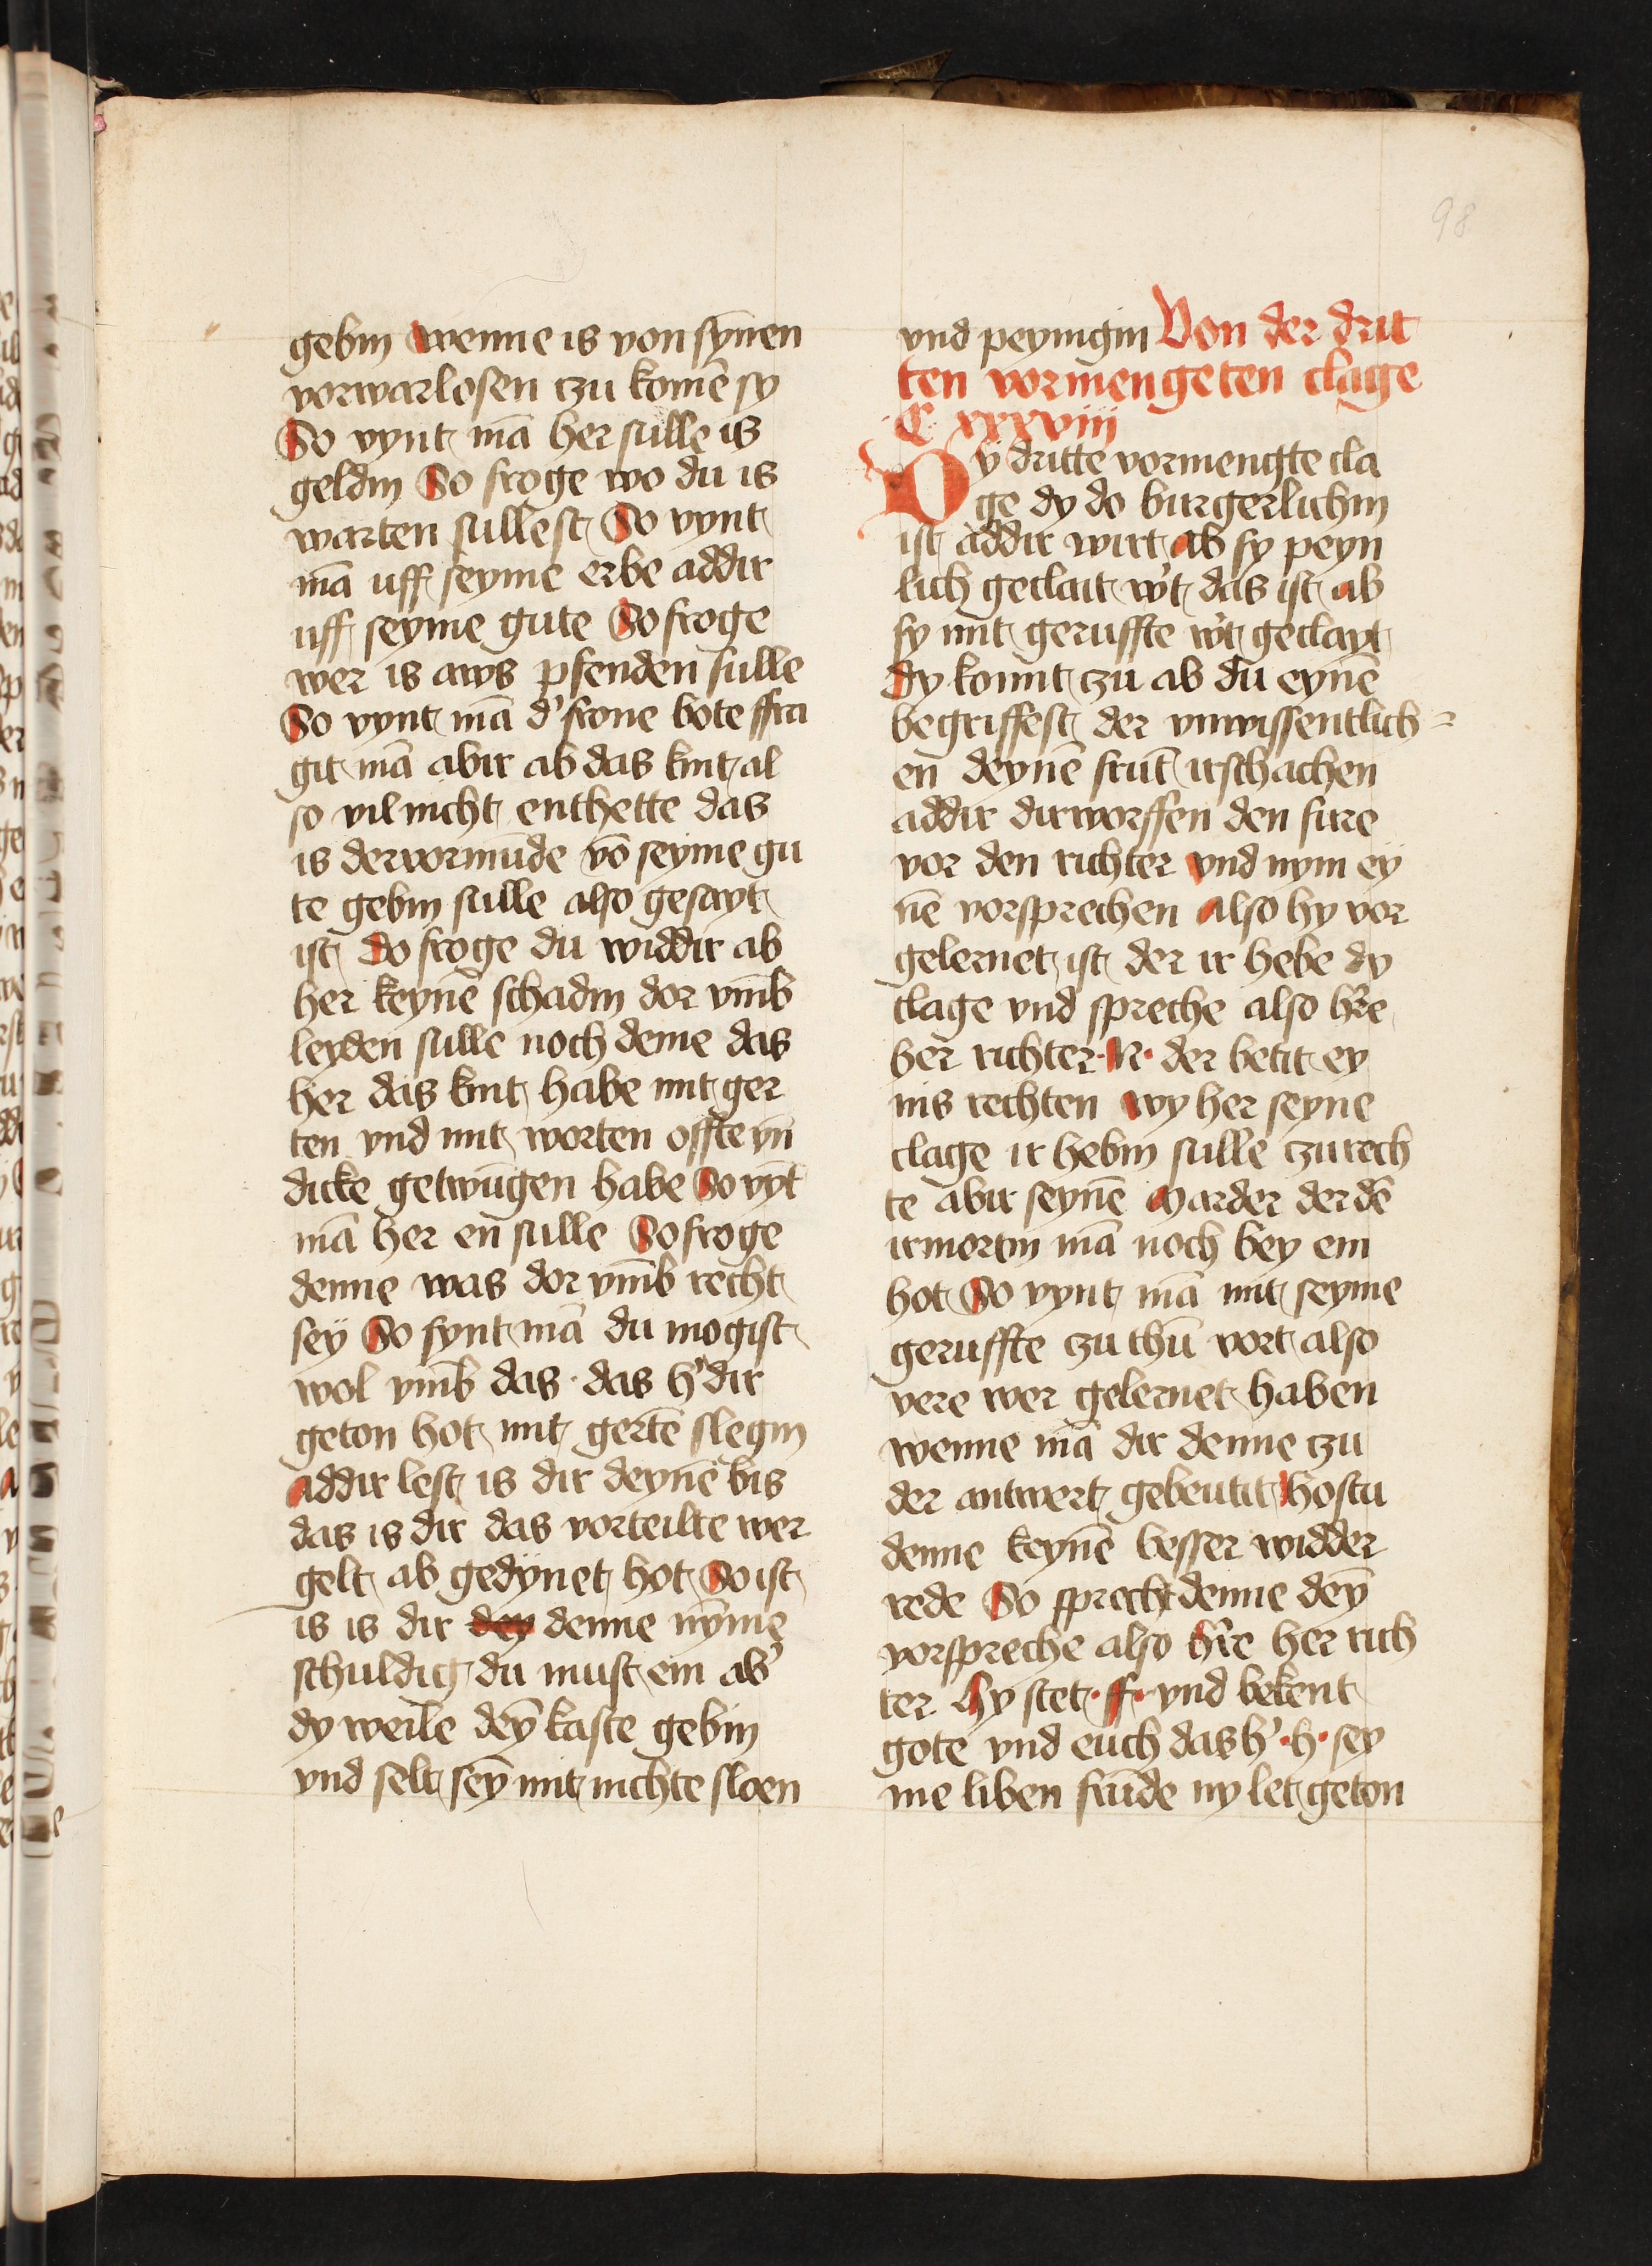 98
gebin wenne is von synen
vorwarlosen czu komē sy
So vynt mā her sulle is
geldin So froge wo du is
warten sullest So vynt
mā uff seyme erbe addir
uff seyme gute So froge
wer is aws pfenden sulle
So vynt mā d' frone bote ffra
git mā abir ab das kint al
so vil nicht enthette das
is der vormūde vō seyme gu
te gebin sulle also gesayt
ist Do froge du widdir ab
her keynē schadin dor vm̄b
leyden sulle noch deme das
her das kint habe mit ger
ten vnd mit worten offte vn̄
dicke getwūgen habe So vyt
mā her en sulle So froge
denne was dor vm̄b recht
sey So fynt mā du mogist
wol vm̄b das · das h' dir
geton hot mit gertē slegin
addir lest is dir deynē bis
das is dir das vorteilte wer
gelt ab gedynet hot So ist
is is dir dey denne nym̄e
schuldig du must em ab'
dy weile dey̅ kaste gebin
vnd selt sey̅ mit nichte sloen
vnd peynigin Von der drit
ten vormengeten clage
C xxxviii
Dy dritte vormengte cla
ge dy do burgerlichin
ist addir wirt ab sy peyn
lich geclait w't das ist ab
sy mit geruffte w't geclayt
dy komīt czu ab du eynē
begriffest der vnwissentlich=
en deynē frūt irschachen
addir dirworffen den fure
vor den richter vnd nym ey
nē vorsprechen also hy vor
gelernet ist der ir hebe dy
clage vnd spreche also h're
her richter · N · der betit ey
nis rechten wy her seyne
clage ir hebin sulle czu rech
te abir seynē Marder der dē
irmortin mā noch bey em
hot So vynt mā mit seyme
geruffte czu thū vort also
vere wer gelernet haben
wenne mā dir denne czu
der antwert gebeutit Hostu
denne keynē besser widder
rede So sprech denne dey̅
vorspreche also h're her rich
ter Hy stet · ff · vnd bekent
gote vnd euch das h' · h · sey
me liben frūde ny let geton